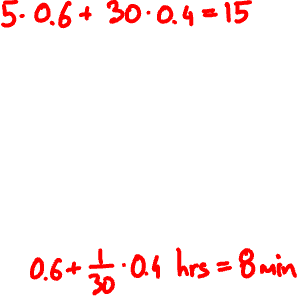 5·0.6+30·0.4=15
0.6+1/30·0.4 hrs=8min